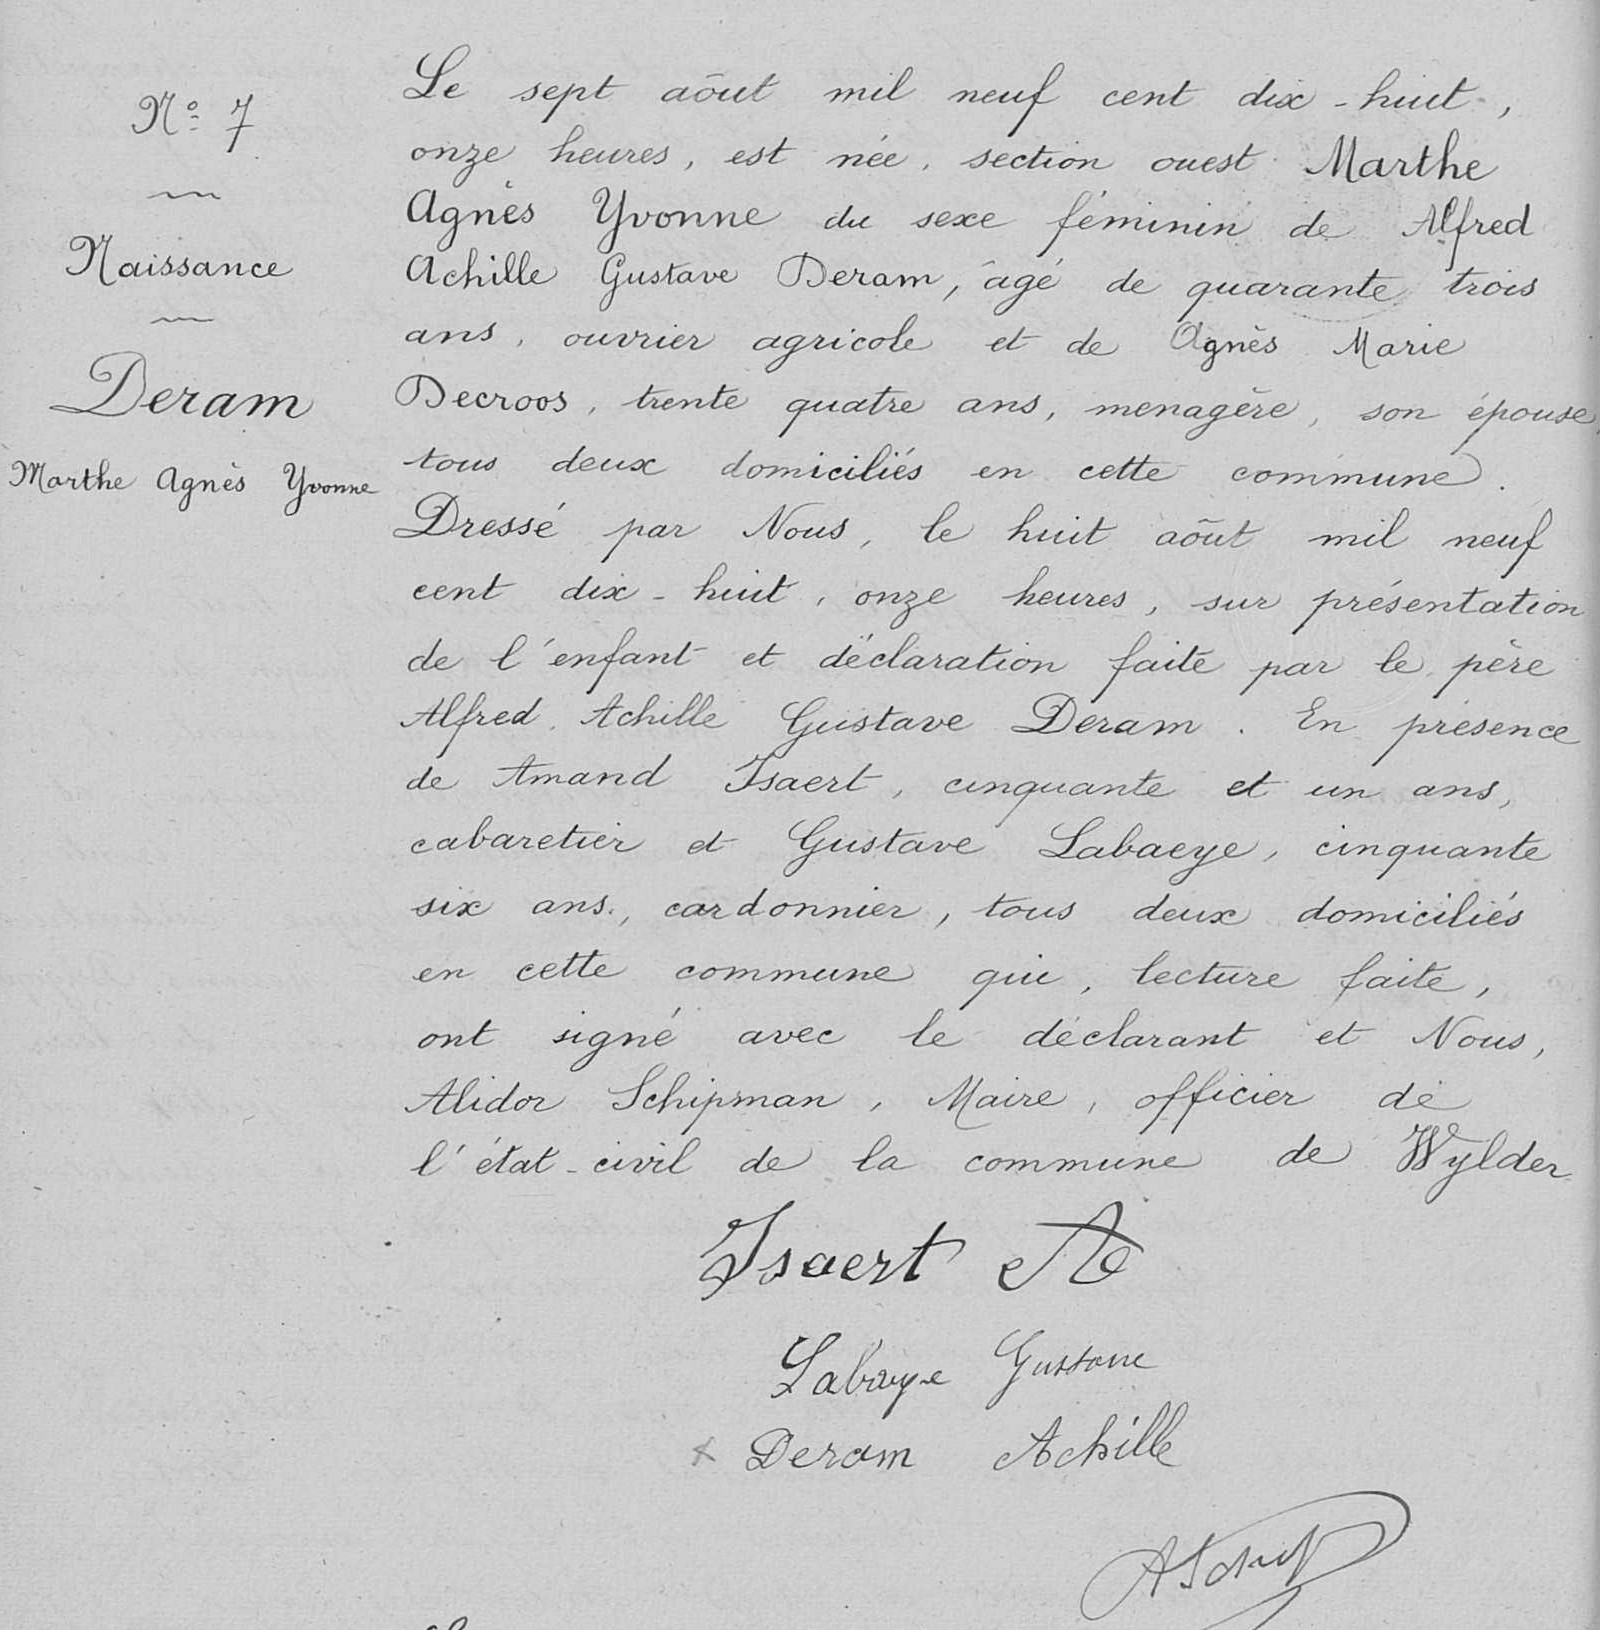 N° 7
Naissance
Deram
Marthe Agnès Yvonne
Le sept août mil neuf cent dix-huit,
onze heures, est née, section ouest Marthe
Agnès Yvonne du sexe féminin de Alfred
Achille Gustave Deram, âgé de quarante trois
ans, ouvrier agricole et de Agnès Marie
Decroos, trente quatre ans, menagère, son épouse,
tous deux domiciliés en cette commune.
Dressé par Nous, le huit août mil neuf
cent dix-huit, onze heures, sur présentation
de l'enfant et déclaration faite par le père
Alfred Achille Gustave Deram. En présence
de Amand Isaert, cinquante et un ans,
cabaretier et Gustave Labaeye, cinquante
six ans, cardonnier, tous deux domiciliés
en cette commune qui, lecture faite,
ont signé avec le déclarant et Nous,
Alidor Schipman, Maire, officier de
l'état-civil de la commune de Wylder
Isaert A
Labaeye Gustave
x Deram Achille